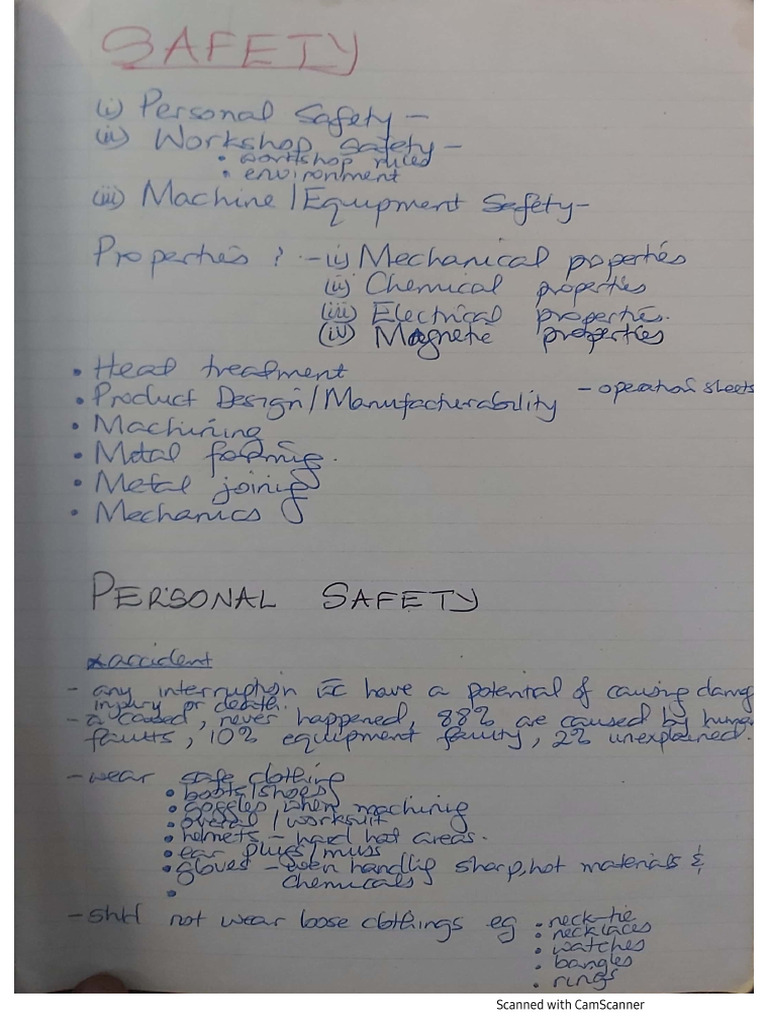 SAFETY
(i) Personal Safety -
(ii) Workshop safety -
• workshop rules
• environment
(iii) Machine/Equipment Safety -
Properties : - (i) Mechanical properties
(ii) Chemical properties
(iii) Electrical properties.
(iv) Magnetic properties
• Heat treatment
• Product Design/Manufacturability - operation sheets
• Machining
• Metal forming.
• Metal joining
• Mechanics
PERSONAL SAFETY
accident
- any interruption have a potential of causing damag
injury or death.
- a caused, never happened, 88% are caused by human
faults, 10% equipment faulty, 2% unexplained.
- wear safe clothing
• boots/shoes
• goggles when machining
• overal/worksuit
• helmets - hard hat areas.
• ear plugs/muss
• gloves - handlig sharp, hot materials &
chemicals
•
- not wear loose clothings eg • neck-tie
• necklaces
• watches
• bangles
• rings
Scanned with CamScanner